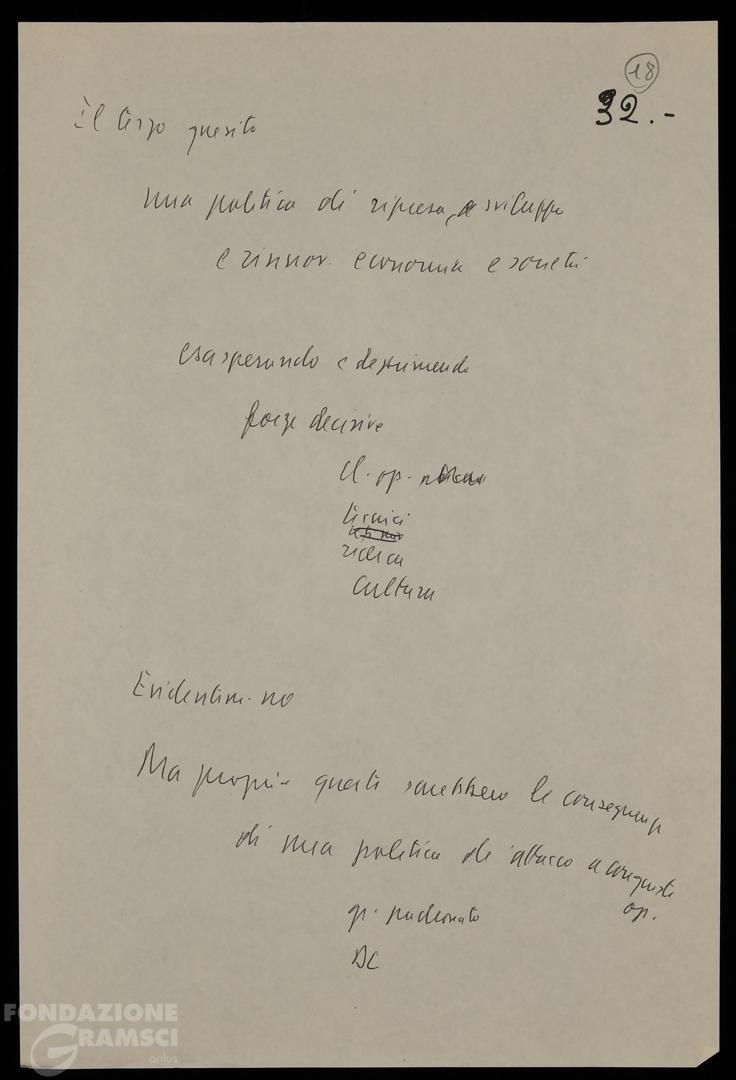 18
32.-
Il terzo quesito
una politica di ripresa, sviluppo
e rinnov. economia e società
esasperando e deprimendo
forze decisive
cl. op.
tecnici
ricerca
cultura
Evidentem. no
Ma proprio questi sarebbero le conseguenze
di una politica di attacco a conquiste
op.
gr. padronato
DC
FONDAZIONE
GRAMSCI
onlus